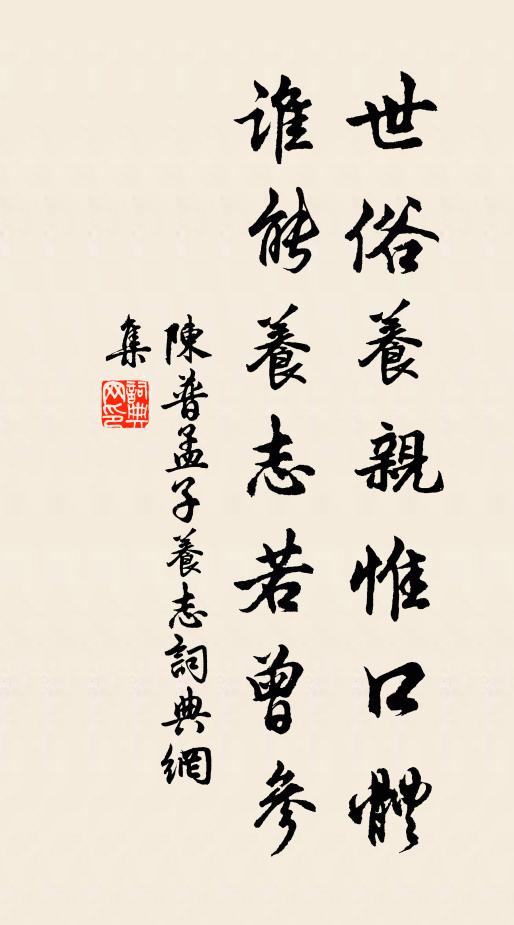 世俗養親惟口體
誰能養志若曾參
陳普孟子養志詞典網
集
詞典
网印